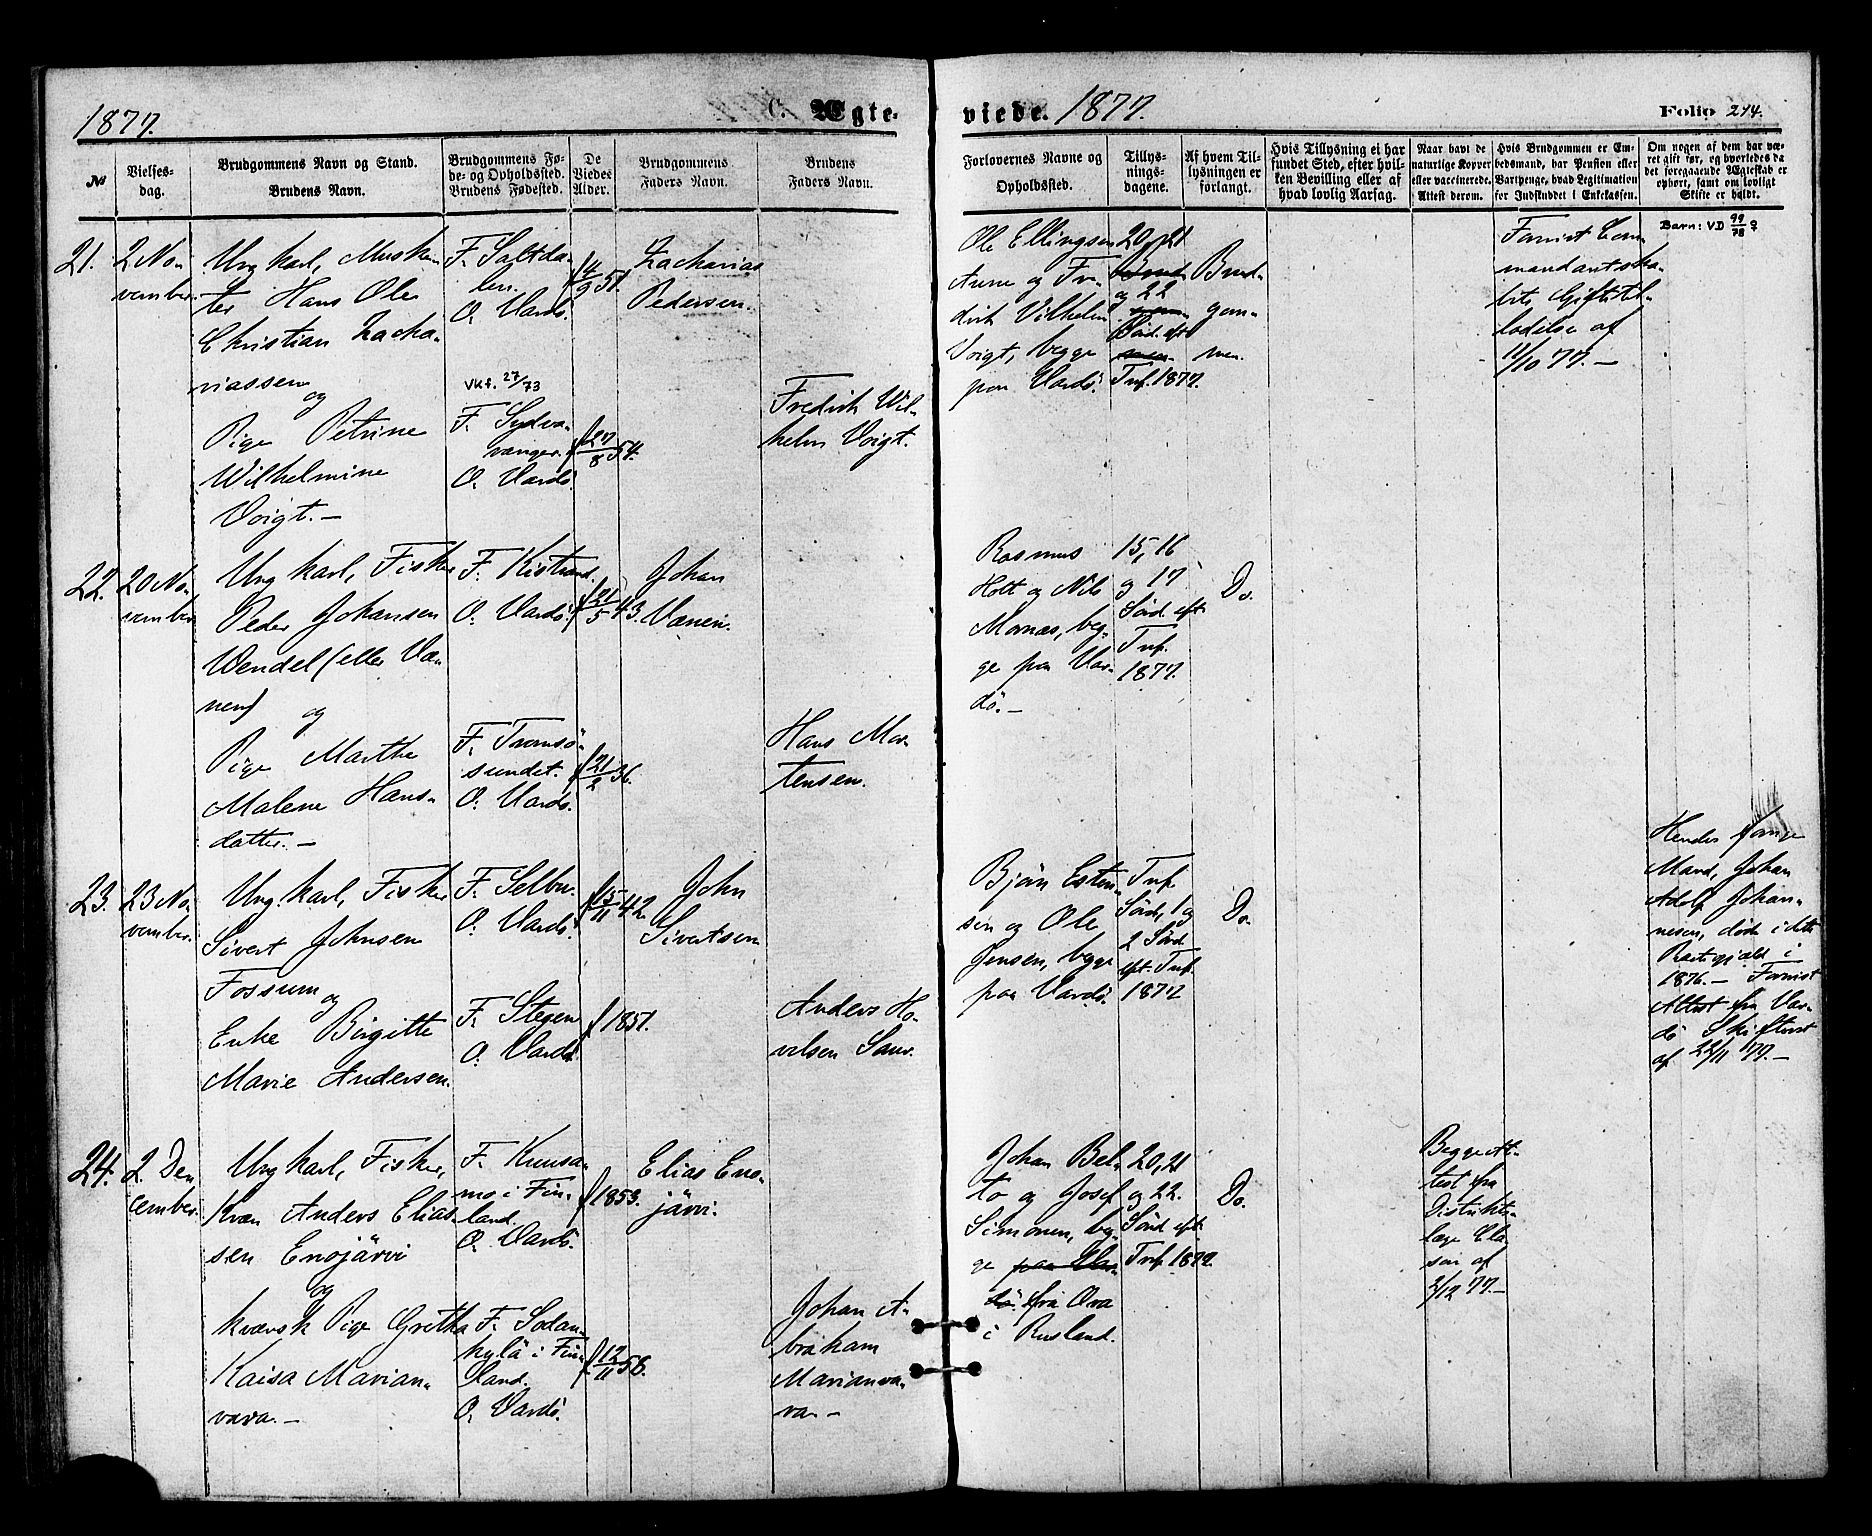 1877.
C. Ægte-
viede. 1877.
Folio 214.
No
Vielses-
dag.
Brudgommens Navn og Stand.
Brudens Navn.
Brudgommens Fø-
de- og Opholdssted.
Brudens Fødested.
De
Viedes
Alder.
Brudgommens
Faders Navn.
Brudens
Faders Navn.
Forlovernes Navne og
Opholdssted.
Tillys-
nings-
dagene.
Af hvem Til-
lysningen er
forlangt.
Hvis Tillysning ei har
fundet Sted, efter hvil-
ken Bevilling eller af
hvad lovlig Aarsag.
Naar havt de
naturlige Kopper
eller vaccinerede.
Attest derom.
Hvis Brudgommen er Em-
bedsmand, har Pension eller
Vartpenge, hvad Legitimation
for Indskuddet i Enkekassen.
Om nogen af dem har væ-
ret gift før, og hvorledes da
det foregaaende Ægteskab er
ophørt, samt om lovligt
Skifte er holdt.
21.
2 No-
vember.
Ungkarl, Muske-
ter Hans Ole
Christian Zacha-
riassen
og
Pige Petrine
Wilhelmine
Voigt. —
F. Saltda-
len.
O. Vardö.
Vkf. 27/73
F. Sydva-
ranger.
O. Vardö.
f 4/9 51.
f 27/8 54.
Zacharias
Pedersen.
Fredrik Wil-
helm Voigt.
Ole Ellingsen
Arne og Fre-
drik Vilhelm
Voigt, begge
paa Vardö.
20, 21
og 22
Sönd. eft
Tref. 1877.
Brud-
gom-
men.
Forevist Com-
mandantska-
bets Giftetil-
ladelse af
11/10 77. —
Barn: VD 99/78 ♀
22.
20 No-
vember
Ungkarl, Fisker
Peder Johansen
Wendel (eller Væ-
nen)
og
Pige Marthe
Malene Hans-
datter. —
F. Kistrand.
O. Vardö.
F. Tromsö-
sundet.
O. Vardö.
f 21/5 43.
f 21/2 36.
Johan
Vænen.
Hans Mor-
tensen.
Rasmus
Holt og Nils
Mornæs, beg-
ge paa Var-
dö. —
15, 16
og 17
Sönd. eft
Tref.
1877.
Do.
23.
23 No-
vember.
Ungkarl, Fisker
Sivert Johnsen
Fossum
og
Enke Birgitte
Marie Andersen.
F. Selbu.
O. Vardö.
F. Stegen
O. Vardö.
f 15/11 42.
f 1851.
John
Sivertsen
Anders Ho-
velsen
Björn Esten-
sen og Ole
Jensen, begge
paa Vardö.
Tref.
Sönd., 1 og
2 Sönd
eft. Tref.
1877
Do.
Hendes forrige
Mand, Johan
Adolf Johan-
nesen, döde i dette
Præstegjæld i
1876. — Forevist
Attest fra Var-
dö Skifteret
af 22/11 77. —
24.
2. De-
cember.
Ungkarl, Fisker,
Kvæn Anders Elias-
sen Enojärvi
og
kvænsk Pige Gretha
Kaisa Marian-
vara. —
F. Kuusa-
mo i Fin-
land.
O. Vardö.
F. Sodan-
kylä i Fin-
land.
O. Vardö.
f 1853.
f 12/11 58.
Elias Eno-
järvi.
Johan A-
braham
Marianva-
ra. —
Johan Bel-
to og Josef
Simonen, beg-
ge paa Var-
dö. fra Ora
i Rusland.
20, 21
og 22.
Sönd. eft.
Tref. 1877.
Do.
Begge At-
test fra
Distrikts-
læge Cla-
son af
2/12 77. —